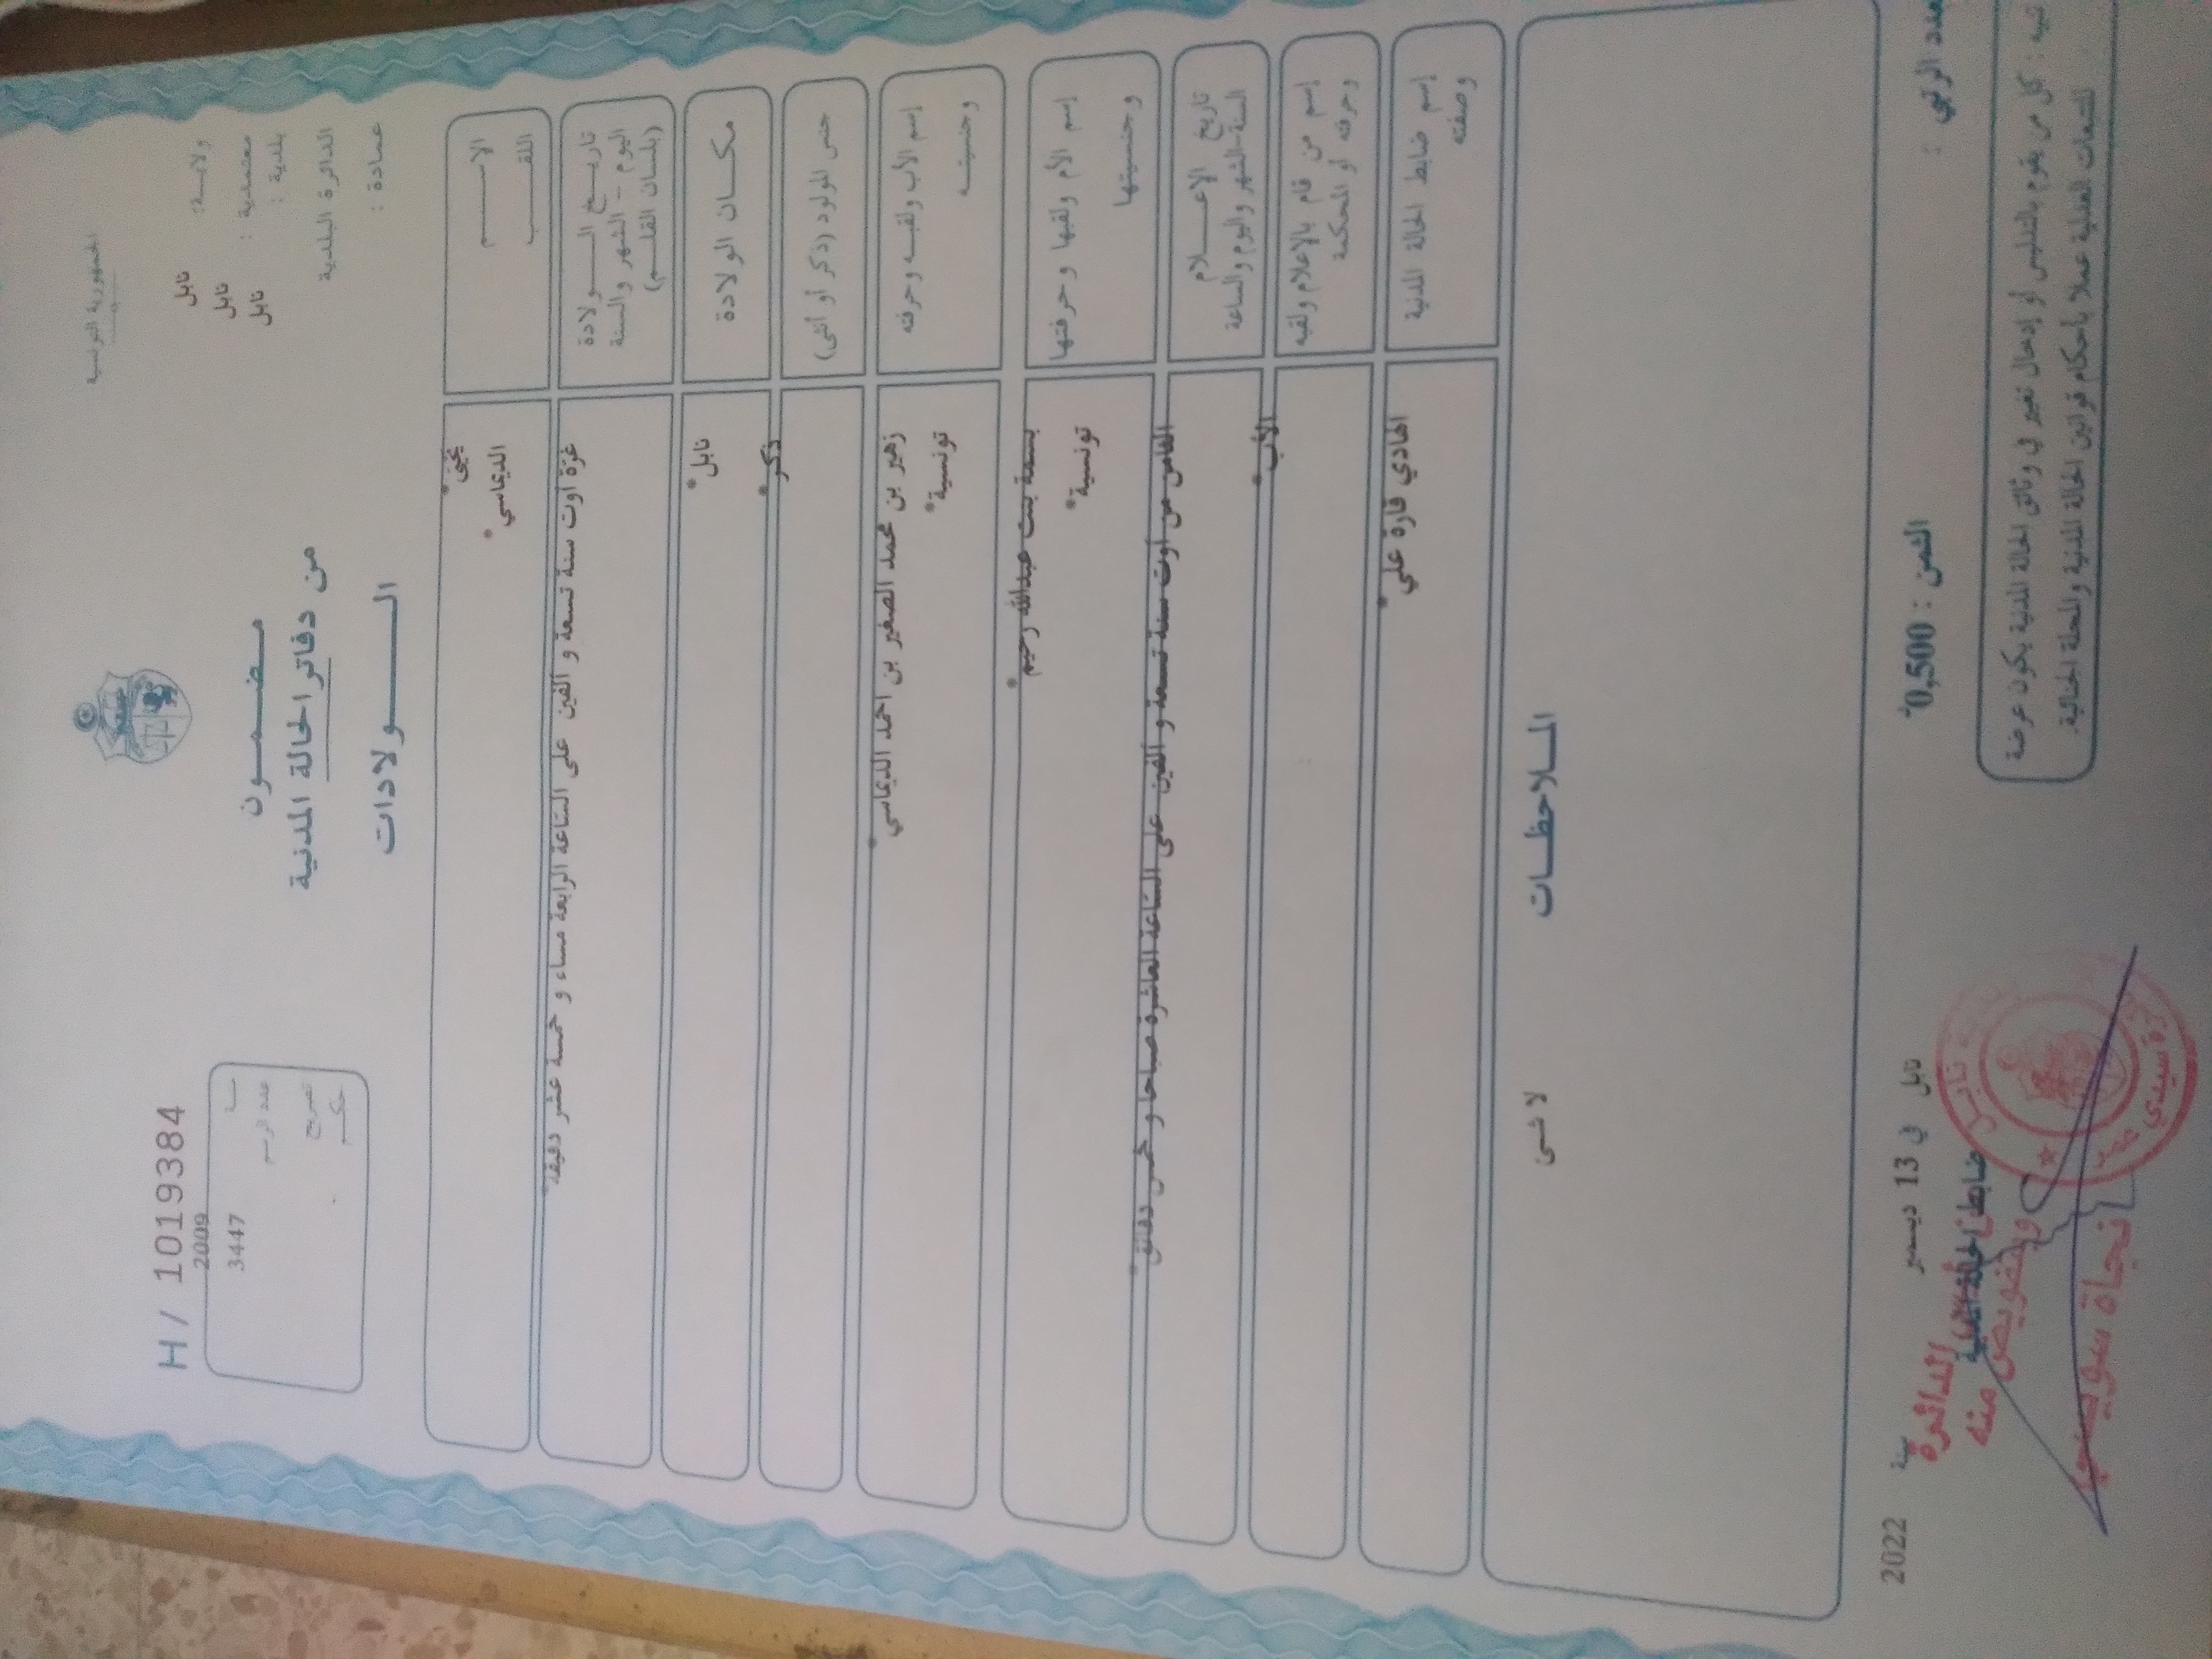 الجمهورية التونسية
H / 1019384
ولاية: نابل
معتمدية : نابل
بلدية : نابل
الدائرة البلدية
عمادة :
سنة 2009
عدد الرسم 3447
تصريح
حكم
مضمون
من دفاتر الحالة المدنية
الولادات
الاسم
*يحيى
اللقب
*الديماسي
تاريخ الولادة
اليوم - الشهر والسنة
(بلسان القلم)
غرة أوت سنة تسعة و ألفين على الساعة الرابعة مساء و خمسة عشر دقيقة*
مكان الولادة
نابل*
جنس المولود (ذكر أو أنثى)
ذكر*
إسم الأب ولقبه وحرفته
زهير بن محمد الصغير بن احمد الديماسي*
وجنسيته
تونسية*
إسم الأم ولقبها وحرفتها
بسمة بنت عبدالله رحيم*
وجنسيتها
تونسية*
تاريخ الإعلام
السنة-الشهر واليوم والساعة
الثامن من أوت سنة تسعة و ألفين على الساعة العاشرة صباحا و خمس دقائق*
إسم من قام بالإعلام ولقبه
وحرفته أو المحكمة
الأب*
إسم ضابط الحالة المدنية
وصفته
الهادي قارة علي*
الملاحظات
لا شى
العدد الرتبي :
الثمن : 0,500د
نابل في 13 ديسمبر سنة 2022
ضابط الحالة المدنية
الدائرة
وبتفويض منه
نجاة سويسي
تنبيه : كل من يقوم بالتدليس أو إدخال تغيير في وثائق الحالة المدنية يكون عرضة
للتتبعات العدلية عملا بأحكام قوانين الحالة المدنية والمجلة الجنائية.